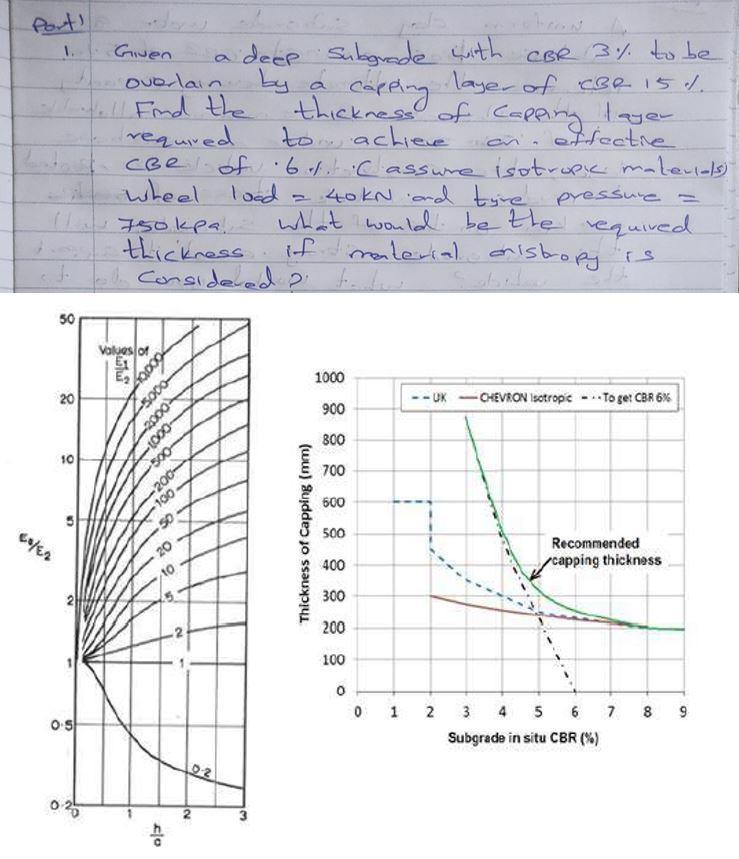 Part 1
1. Given a deep subgrade with CBR 3% to be
overlain by a capping layer of CBR 15%.
Find the thickness of capping layer
required to achieve an effective
CBR of 6%. (assume isotropic materials)
wheel load = 40kN and tyre pressure =
750kpa. what would be the required
thickness if material anistropy is
Considered?
50
20
10
5
2
1
0·5
0·2
E₀/E₂
Values of
E1
E2
10,000
5000
2000
1000
500
200
100
50
20
10
5
2
1
0·2
0
1
2
3
h
a
1000
900
800
700
600
500
400
300
200
100
0
Thickness of Capping (mm)
UK
CHEVRON Isotropic
To get CBR 6%
Recommended
capping thickness
0 1 2 3 4 5 6 7 8 9
Subgrade in situ CBR (%)